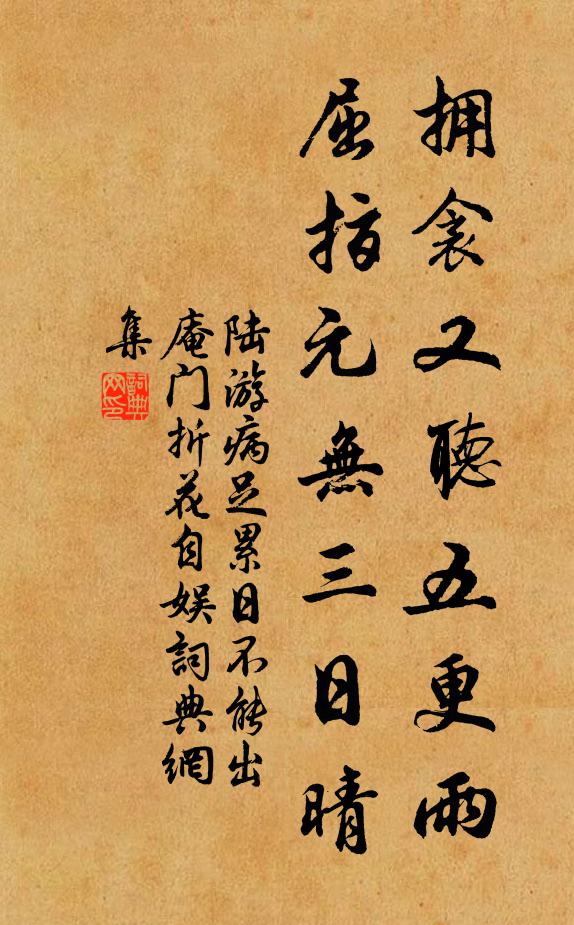 拥衾又聽五更雨
屈指元無三日晴
陆游病足累日不能出
庵门折花自娱詞典網
集
詞典
网印